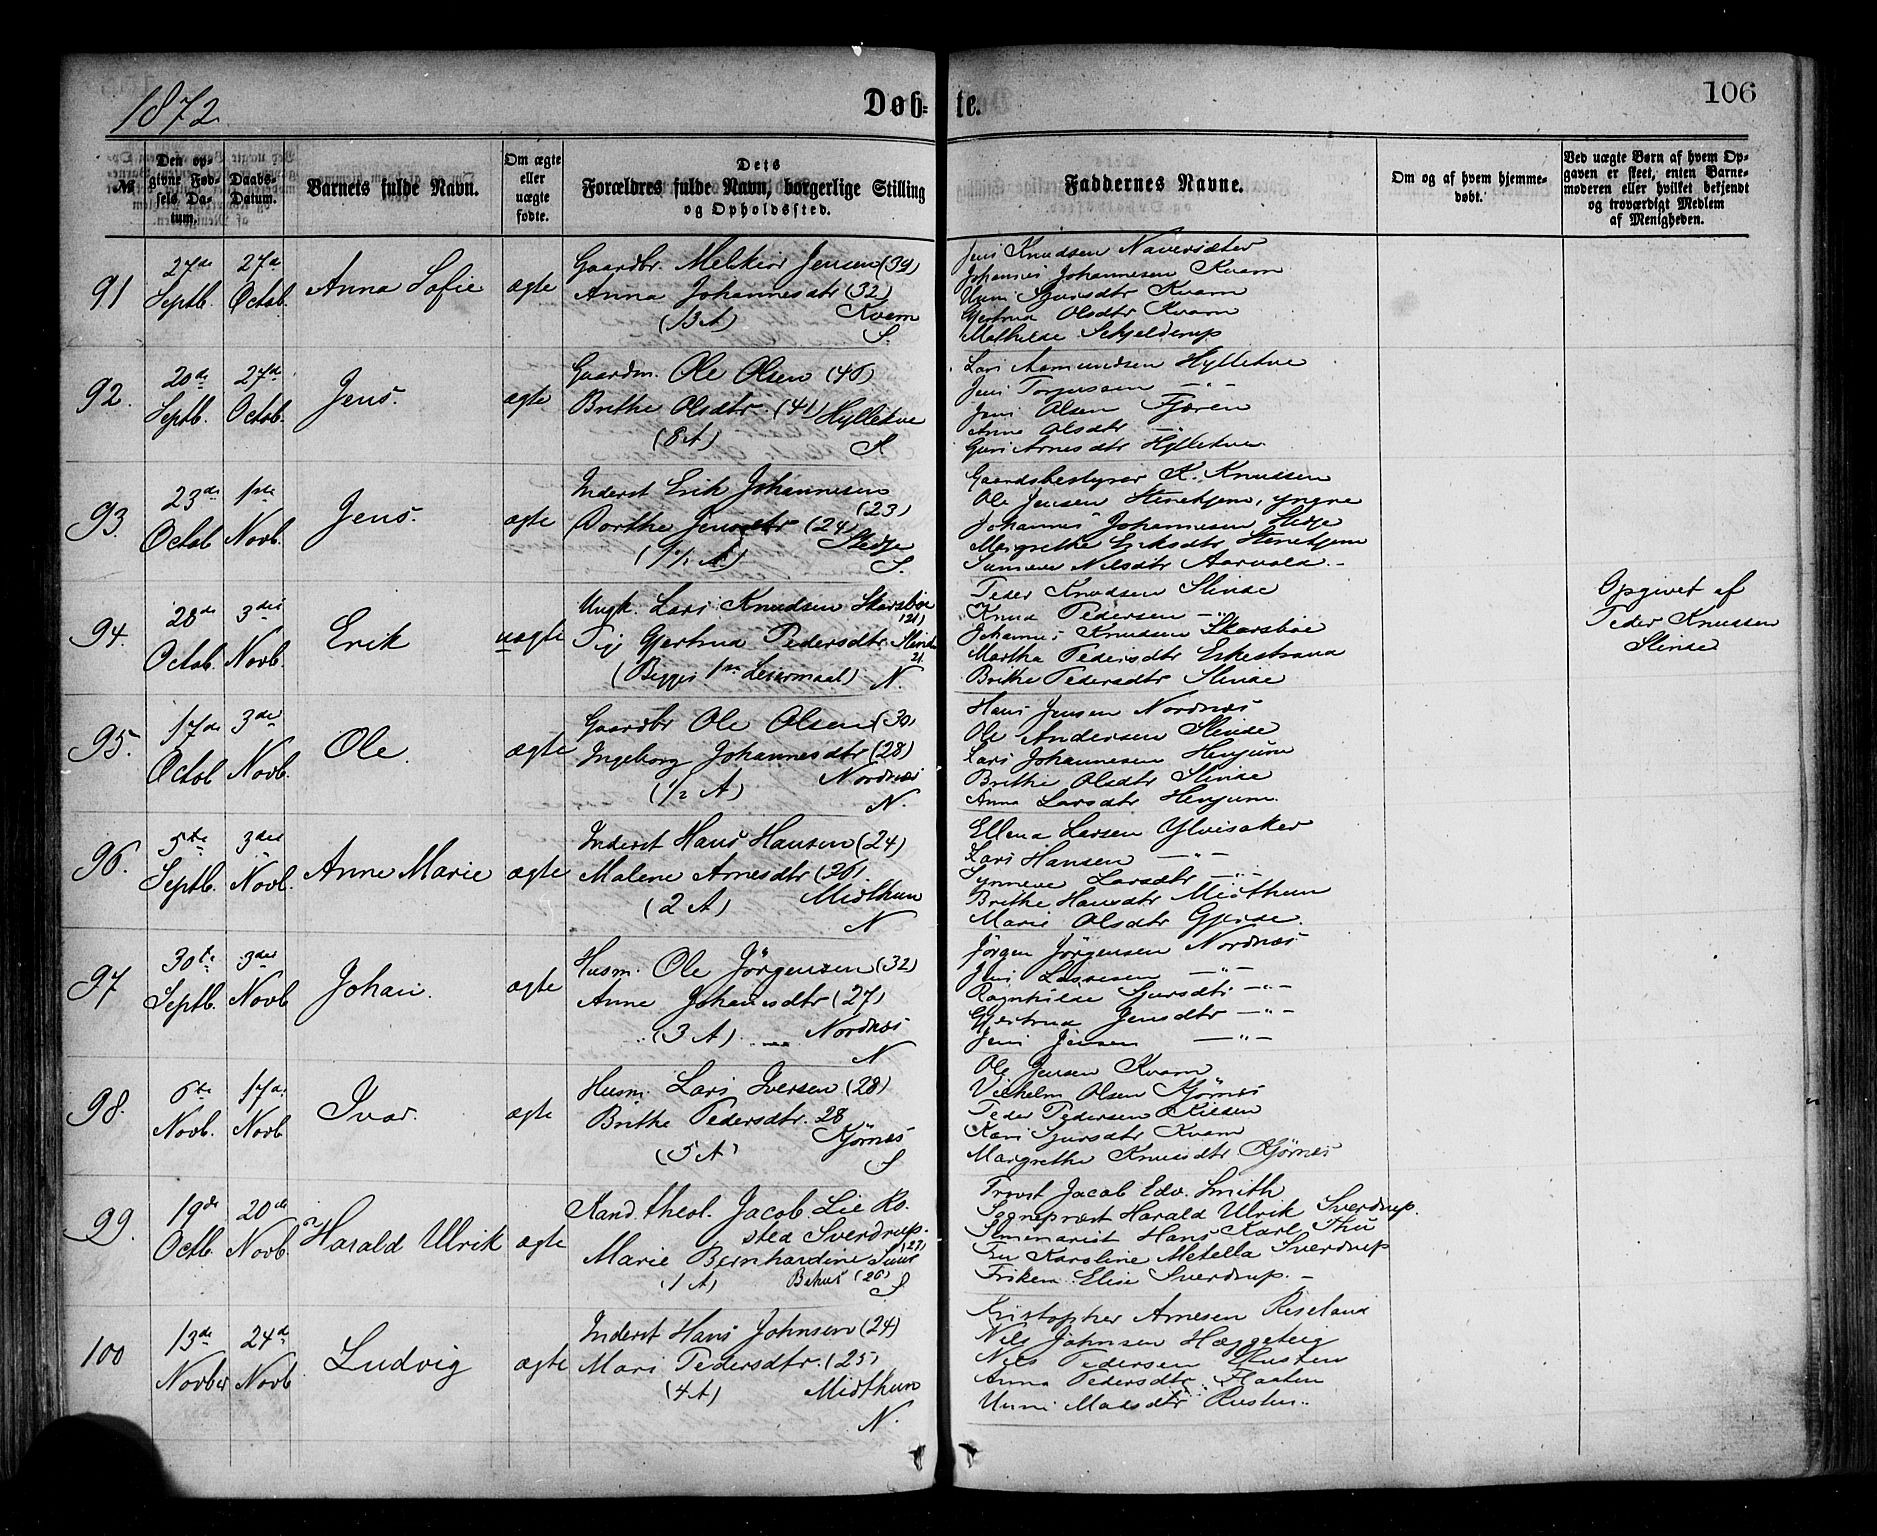 1872.
Døb-te.
106
№
Den opgivne Fødsels Datum.
Daabs-Datum.
Barnets fulde Navn.
Om ægte eller uægte fødte.
Dets Forældres fulde Navn, borgerlige Stilling og Opholdssted.
Faddernes Navne.
Om og af hvem hjemmedøbt.
Ved uægte Børn af hvem Opgaven er skeet, enten Barnemoderen eller hvilket bekjendt og troværdigt Medlem af Menigheden.
91
27de Septb.
27d Octob.
Anna Sofie
ægte
Gaardbr. Melkior Jensen (39)
Anna Johannesdtr (32)
(13 A) Kvam
S.
Jens Knudsen Navarsæter
Johannes Johannesen Kvam
Unni Sjursdtr Kvam
Gjertrud Olsdtr Kvam
Mathilde Schjelderup
92.
20de Septb.
27d Octob.
Jens.
ægte
Gaardm. Ole Olsen (46)
Brithe Olsdtr. (41) Hylletve
(8 A) S
Lars Aamundsen Hylletve
Jens Torgersen —"—
Jens Olsen Fjæren
Anna Olsdtr —"—
Guri Arnesdtr Hylletve
93.
23de Octob
1ste Novb.
Jens.
ægte
Inderst Erik Johannesen (23)
Dorthe Jensdtr (24)
Stedje
S.
Gaardsbestyrer K. Knudsen
Ole Jensen Stenehjem, yngre
Johannes Johannesen Stedje
Margrethe Eriksdtr Stenehjem
Synneve Nilsdtr Aarvold
94.
28de Octob.
3die Novb.
Erik
uægte
Ungk. Lars Knudsen Skarsbøe (21)
Pige Gjertrud Pedersdtr Slinde 21.
(Begges 1ste Leiermaal) N.
Peder Knudsen Slinde
Knud Pedersen —"—
Johannes Knudsen Skarsbøe
Martha Pedersdtr Eskestrand
Brithe Pedersdtr Slinde
Opgivet af
Peder Knudsen
Slinde
95.
17de Octob
3die Novb.
Ole.
ægte
Gaardbr Ole Olsen (30)
Ingeborg Johannesdtr (28)
(1/2 A) Nordnæs
N.
Hans Jensen Nordnæs
Ole Andersen Slinde
Lars Johannesen Henjum
Brithe Olsdtr Slinde
Anna Larsdtr Henjum.
96.
5te Septb.
3die Novb.
Anne Marie
ægte
Inderst Hans Hansen (24)
Malene Arnesdtr (26)
(2 A) Midthun
N
Ellend Larsen Ylvisaker
Lars Hansen —"—
Synneve Larsdtr —"—
Brithe Hansdtr Midthun
Marie Olsdtr Gjerde.
97
30te Septb.
3die Novb
Johan.
ægte
Husm. Ole Jörgensen (32)
Anne Johansdtr (27)
(3 A) Nordnæs
N
Jörgen Jörgensen Nordnæs
Jens Lassesen —"—
Ragnhilde Sjursdtr —"—
Gjertrud Jensdtr —"—
Jens Jensen —"—
98.
6te Novb.
17de Novb
Ivar.
ægte
Husm. Lars Iversen (28)
Brithe Pedersdtr. 28
(5 A) Kjørnæs
S
Ole Jensen Kvam
Vilhelm Olsen Kjørnæs
Peder Pedersen Kilsen
Kari Sjursdtr Kvam
Margrethe Knudsdtr Kjørnæs
99.
19de Octb.
20de Novb
Harald Ulrik
ægte
Kand. theol. Jacob Lie Rosted Sverdrup. (27)
Marie Bernhardine Suur (26)
(1 A) S
Provst Jacob Edv. Smith
Sognepræst Harald Ulrik Sverdrup.
Seminarist Hans Karl Thu
Fru Karoline Metella Sverdrup
Frøken Elise Sverdrup. —
100
13de Novber
24d Novb
Ludvig
ægte
Inderst Hans Johnsen (24)
Mari Pedersdtr. (25)
(4 A) Midthun
N.
Kristopher Arnesen Riseland
Nils Johnsen Hæggeberg
Nils Pedersen Rusten
Anna Pedersdtr. Flaaten
Unni Madsdtr Rusten.